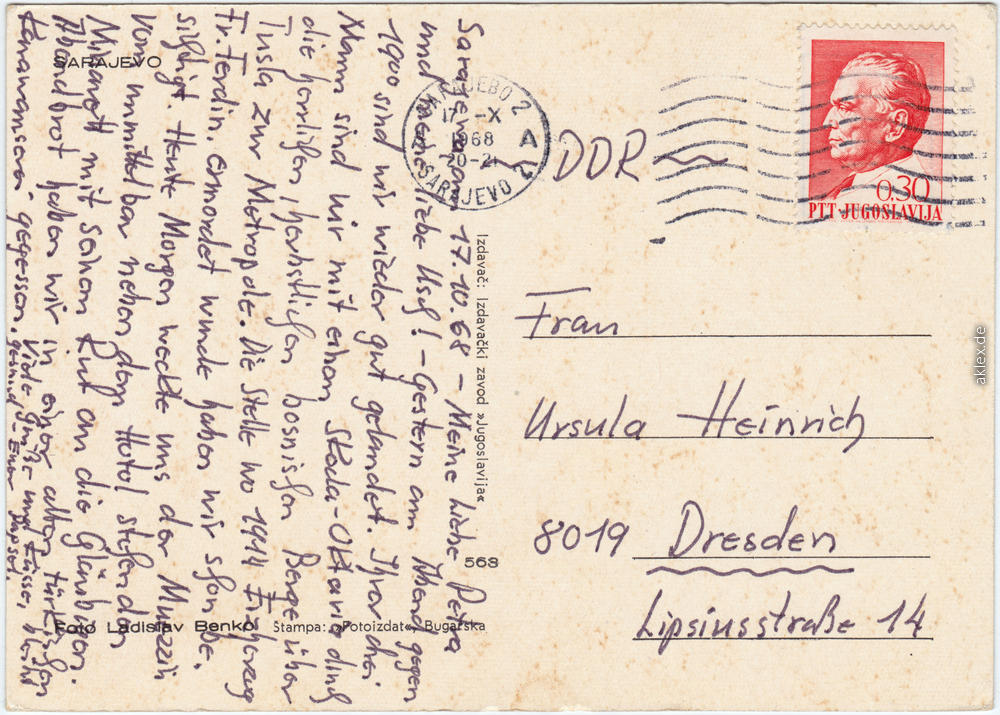 SARAJEVO
Sarajevo am 17.10.68 – Meine liebe Petra
und meine liebe Usch! – Gestern am Abend gegen
1900 sind wir wieder gut gelandet. Ihrer drei
Mann sind wir mit einem Skoda-Oktavia durch
die herrlichen, herbstlichen bosnischen Berge über
Tusla zur Metropole. Die Stelle wo 1914 Erzherzog
Fr. Ferdin. ermordet wurde haben wir schon be,
sichtigt. Heute Morgen weckte uns der Muezzin
vom unmittelbar neben dem Hotel stehenden
Minarett mit seinem Ruf an die Gläubigen.
Abendbrot haben wir in einer alten türkischen
Karawanserei gegessen.
Viele Grüße und Küsse, bleibt
gesund, Euer
Foto Ladislav Benko Štampa: »Fotoizdat« Bugarska
Izdavač: Izdavački zavod »Jugoslavija«
568
САРАЈЕВО 2
17.-X
1968
20-21
A
SARAJEVO 2
DDR
0,30
PTT-JUGOSLAVIJA
Frau
Ursula Heinrich
8019 Dresden
Lipsiusstraße 14
aklex.de